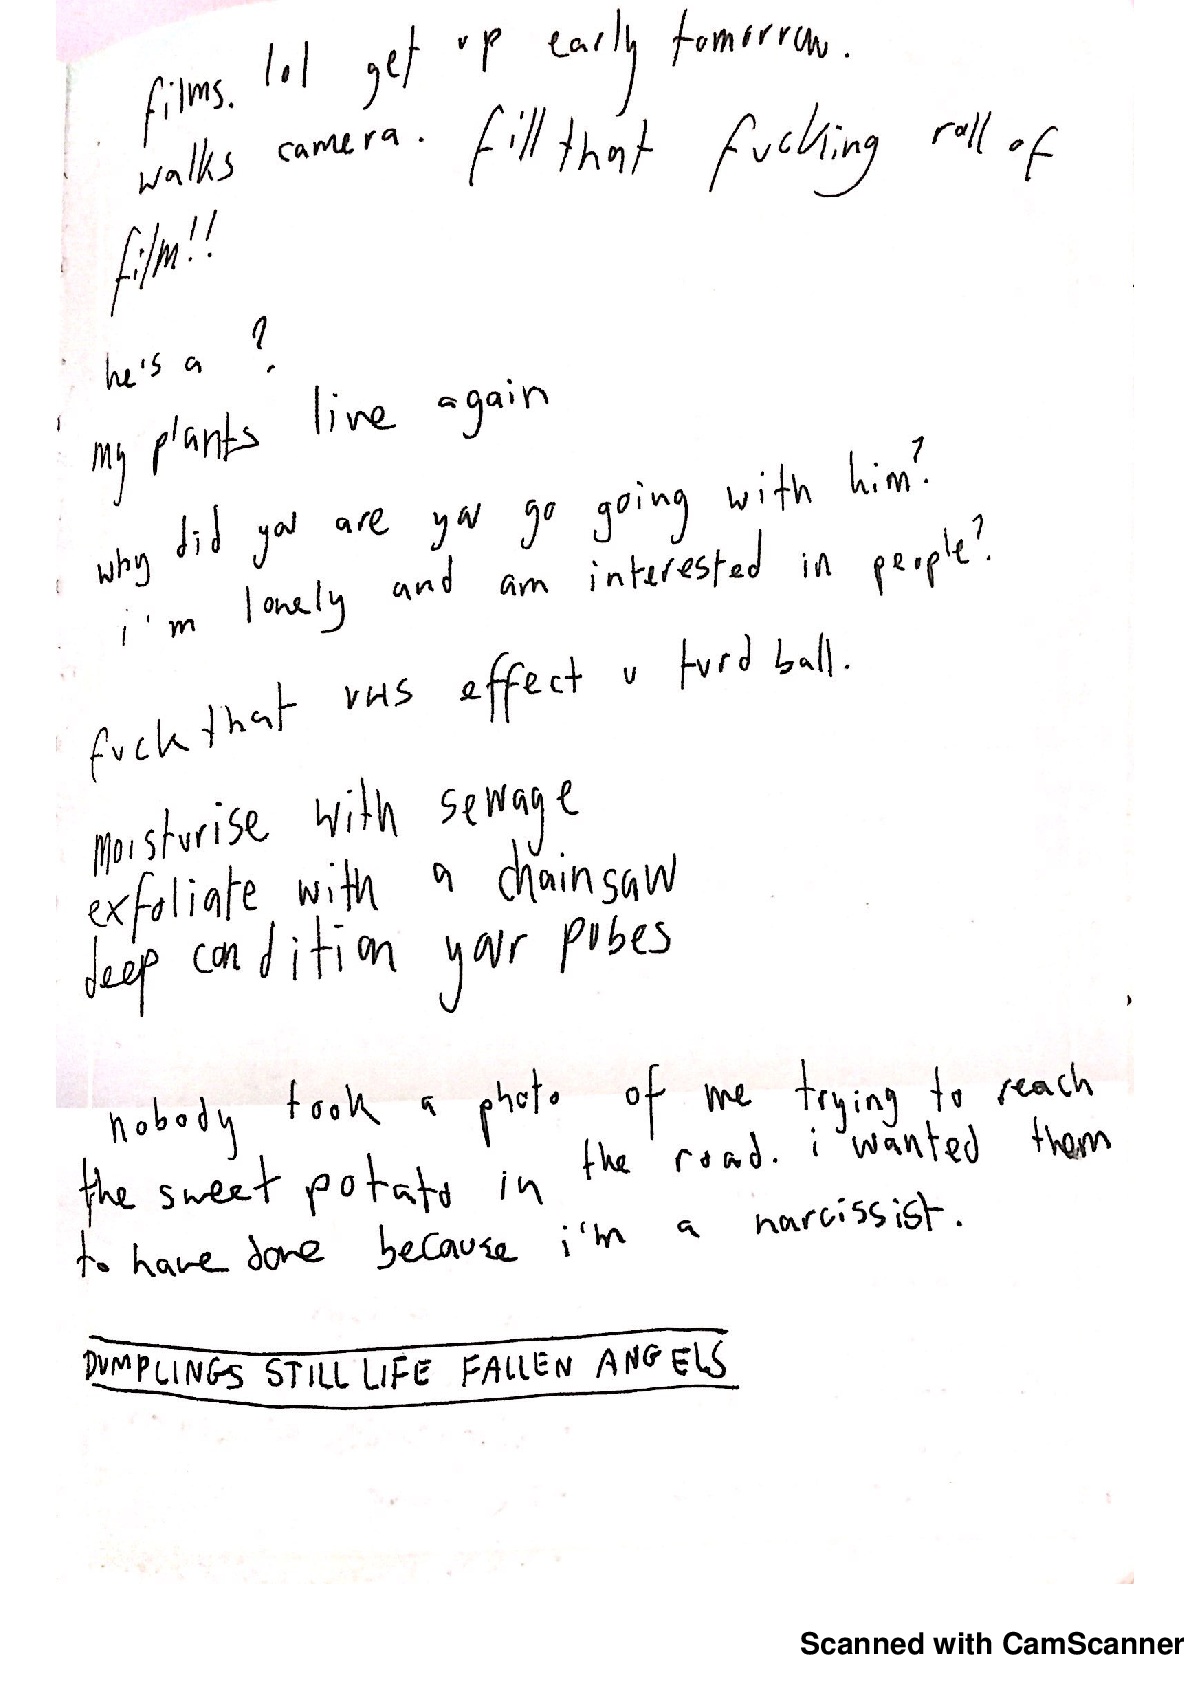 films. lol get up early tomorrow.
walks camera. fill that fucking roll of
film!!
he's a ?
my plants live again
why did you are you go going with him?
i'm lonely and am interested in people?
fuck that VHS effect u turd ball.
moisturise with sewage
exfoliate with a chainsaw
deep condition your pubes
nobody took a photo of me trying to reach
the sweet potato in the road. i wanted them
to have done because i'm a narcissist.
DUMPLINGS STILL LIFE FALLEN ANGELS
Scanned with CamScanner